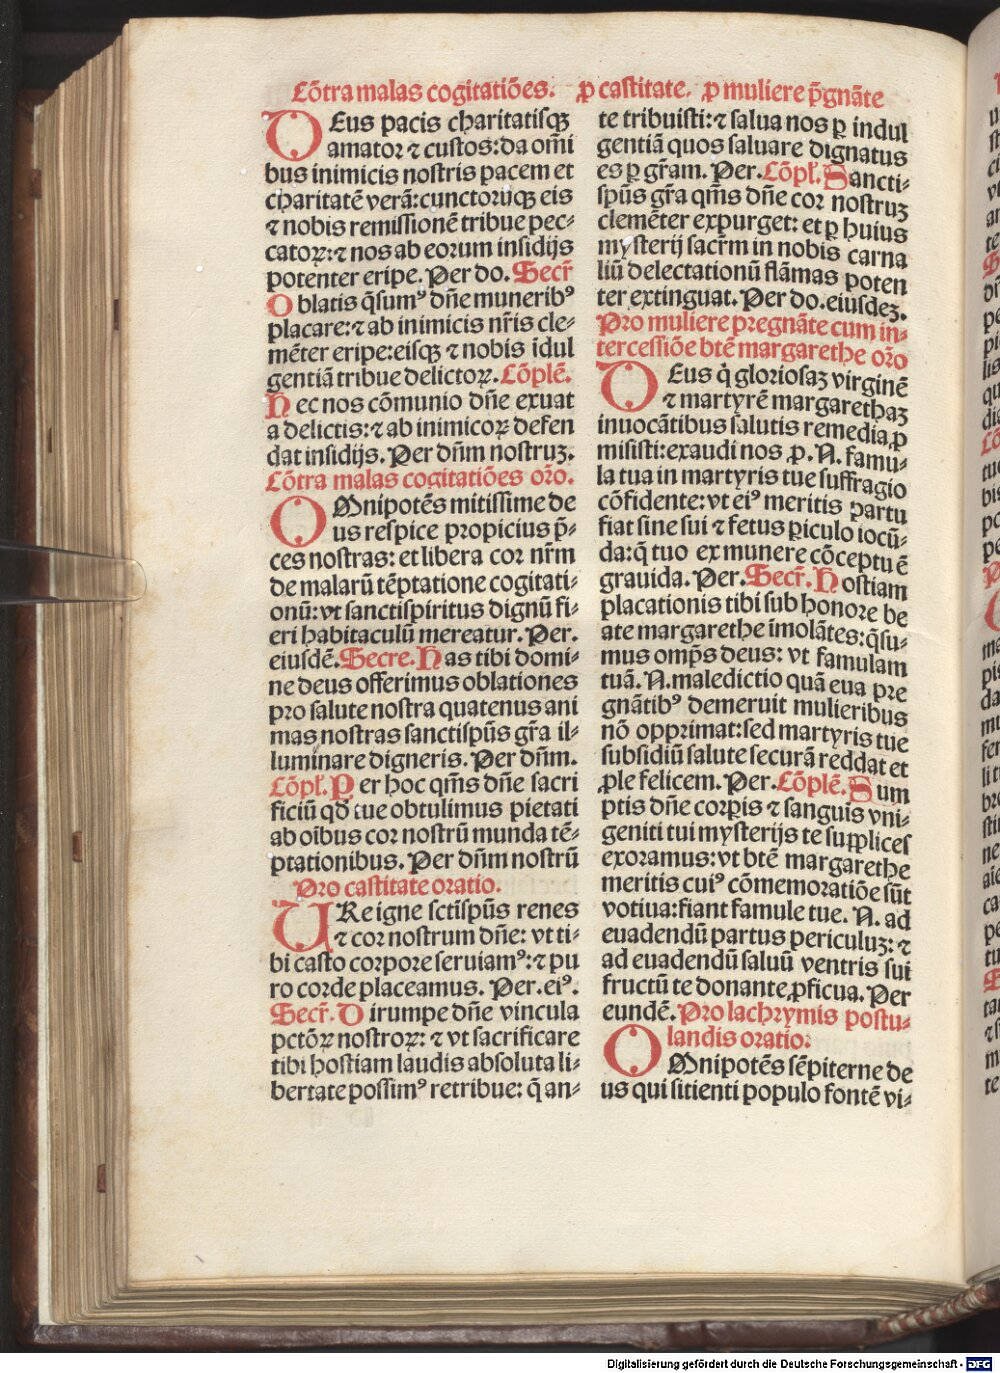 Cōtra malas cogitatiōes. ꝓ castitate. ꝓ muliere p̄gnāte
DEus pacis charitatisqꝫ
amator ⁊ custos:da om̄i
bus inimicis nostris pacem et
charitatē verā:cunctorūqꝫ eis
⁊ nobis remissionē tribue pec-
catoꝝ:⁊ nos ab eorum insidijs
potenter eripe. Per do. Secr̄
Oblatis q̄sumꝰ dn̄e muneribꝰ
placare:⁊ ab inimicis nr̄is cle-
mēter eripe:eisqꝫ ⁊ nobis īdul
gentiā tribue delictoꝝ. Cōplē.
Hec nos cōmunio dn̄e exuat
a delictis:⁊ ab inimicoꝝ defen
dat insidijs. Per dn̄m nostruꝫ.
Cōtra malas cogitatiōes or̄o.
OMnipotēs mitissime de
us respice propicius p̄-
ces nostras: et libera cor nr̄m
de malarū tēptatione cogitati-
onū: vt sanctispiritus dignū fi-
eri habitaculū mereatur. Per.
eiusdē. Secre. Has tibi domi-
ne deus offerimus oblationes
pro salute nostra quatenus ani
mas nostras sanctisp̄us gr̄a il-
luminare digneris. Per dn̄m.
Cōpl̄. Per hoc qm̄s dn̄e sacri
ficiū qd̄ tue obtulimus pietati
ab oībus cor nostrū munda tē-
ptationibus. Per dn̄m nostrū
Pro castitate oratio.
URe igne sctīsp̄us renes
⁊ cor nostrum dn̄e: vt ti-
bi casto corpore seruiamꝰ:⁊ pu
ro corde placeamus. Per. eiꝰ.
Secr̄. Dirumpe dn̄e vincula
pctōꝝ nostroꝝ: ⁊ vt sacrificare
tibi hostiam laudis absoluta li-
bertate possimꝰ retribue: q̄ an-
te tribuisti:⁊ salua nos ꝑ indul
gentiā quos saluare dignatus
es ꝑ gr̄am. Per. Cōpl̄. Sancti-
sp̄us gr̄a qm̄s dn̄e cor nostruꝫ
clemēter expurget: et ꝑ huius
mysterij sacr̄m in nobis carna
liū delectationū flāmas poten
ter extinguat. Per do. eiusdeꝫ.
Pro muliere pregnāte cum in-
tercessiōe btē margarethe or̄o
DEus q̄ gloriosaꝫ virginē
⁊ martyrē margarethaꝫ
inuocātibus salutis remedia ꝓ
misisti:exaudi nos ꝓ. N. famu-
la tua in martyris tue suffragio
cōfidente: vt eiꝰ meritis partu
fiat sine sui ⁊ fetus ꝑiculo iocū-
da:q̄ tuo ex munere cōceptu ē
grauida. Per. Secr̄. Hostiam
placationis tibi sub honore be
ate margarethe īmolātes: q̄su-
mus omp̄s deus: vt famulam
tuā. N. maledictio quā eua pre
gnātibꝰ demeruit mulieribus
nō opprimat:sed martyris tue
subsidiū salute securā reddat et
ꝓle felicem. Per. Cōplē. Sum
ptis dn̄e corꝑis ⁊ sanguis vni-
geniti tui mysterijs te supplices
exoramus: vt btē margarethe
meritis cuiꝰ cōmemoratiōe sūt
votiua:fiant famule tue. N. ad
euadendū partus periculuꝫ: ⁊
ad euadendū saluū ventris sui
fructū te donante ꝓficua. Per
eundē. Pro lachrymis postu-
landis oratio:
OMnipotēs sēpiterne de
us qui sitienti populo fontē vi-
Digitalisierung gefördert durch die Deutsche Forschungsgemeinschaft - DFG